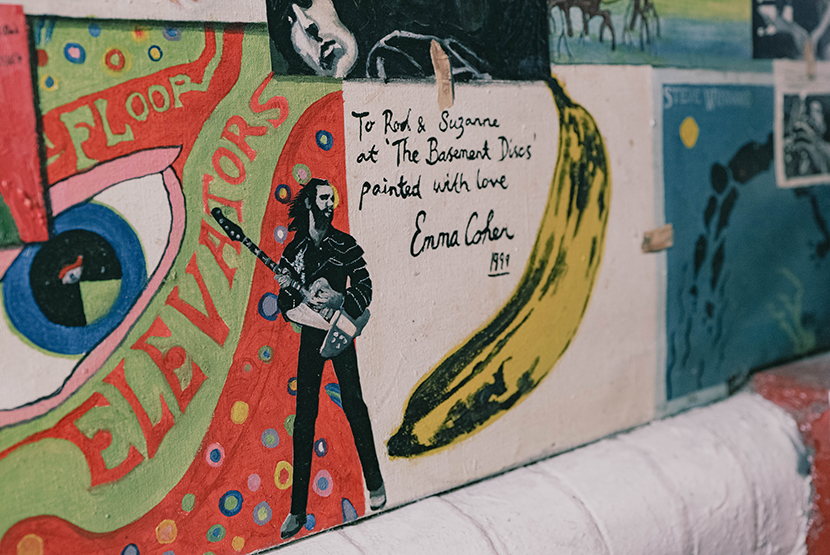 FLOOR
ELEVATORS
To Rod & Suzanne
at 'The Basement Discs'
painted with love
Emma Cohen
1999